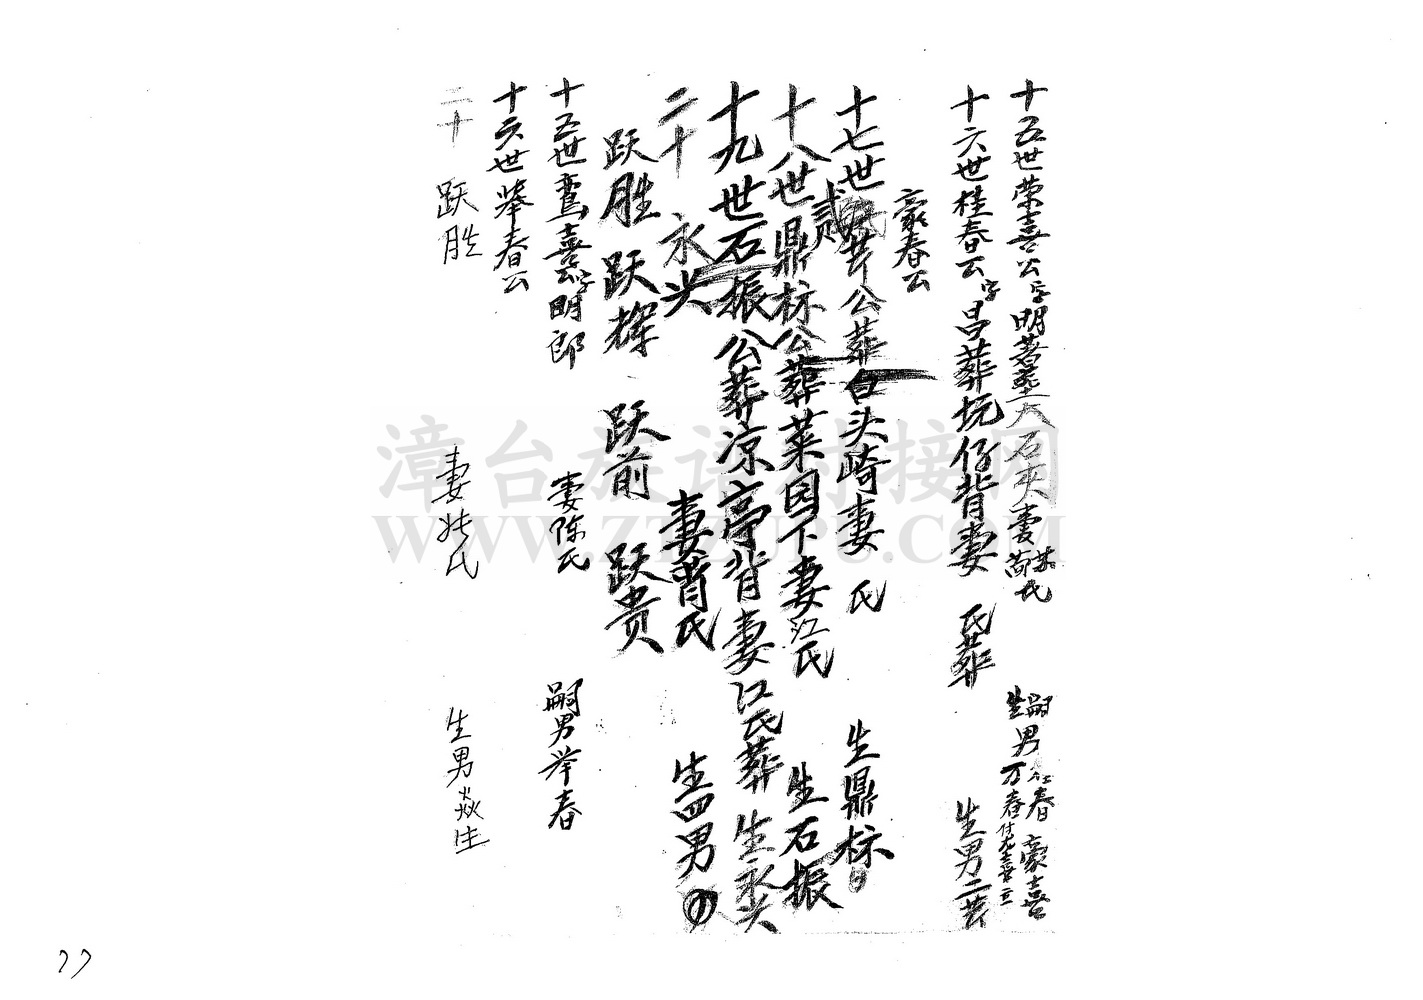 十五世荣喜公字明著葬大石夹妻苏氏 嗣男 春 豪喜
萧 生男万春付龙喜立
十六世桂春公字昌葬坑仔背妻 氏葬 生男二芸
豪春公
十七世贰芸公葬白头崎妻 氏 生鼎标
十八世鼎标公葬菜园下妻江氏 生石振
十九世石振公葬凉亭背妻江氏葬 生永头
二十 永头 妻萧氏 生四男
跃胜 跃辉 跃前 跃贵
十五世鸾喜公字明郎 妻陈氏 嗣男举春
十六世举春公
二十 跃胜 妻 氏 生男焱生
漳台族谱对接网
WWW.ZTZUPU.COM
77